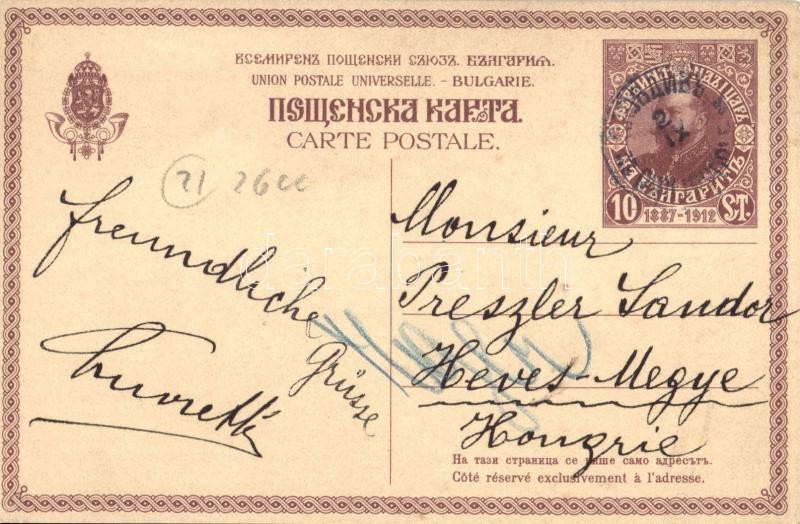 ВСЕМИРЕНЪ ПОЩЕНСКИ СЪЮЗЪ. БЪЛГАРИЯ.
UNION POSTALE UNIVERSELLE. - BULGARIE.
ПОЩЕНСКА КАРТА.
CARTE POSTALE.
БЪЛГАРИТѢ
10 1887-1912 СТ.
21 2600
freundliche
Grüsse
Monsieur
Preszler Sandor
Heves-Megye
Hongrie
darabanth
На тази страница се пише само адресътъ.
Côté réservé exclusivement à l'adresse.